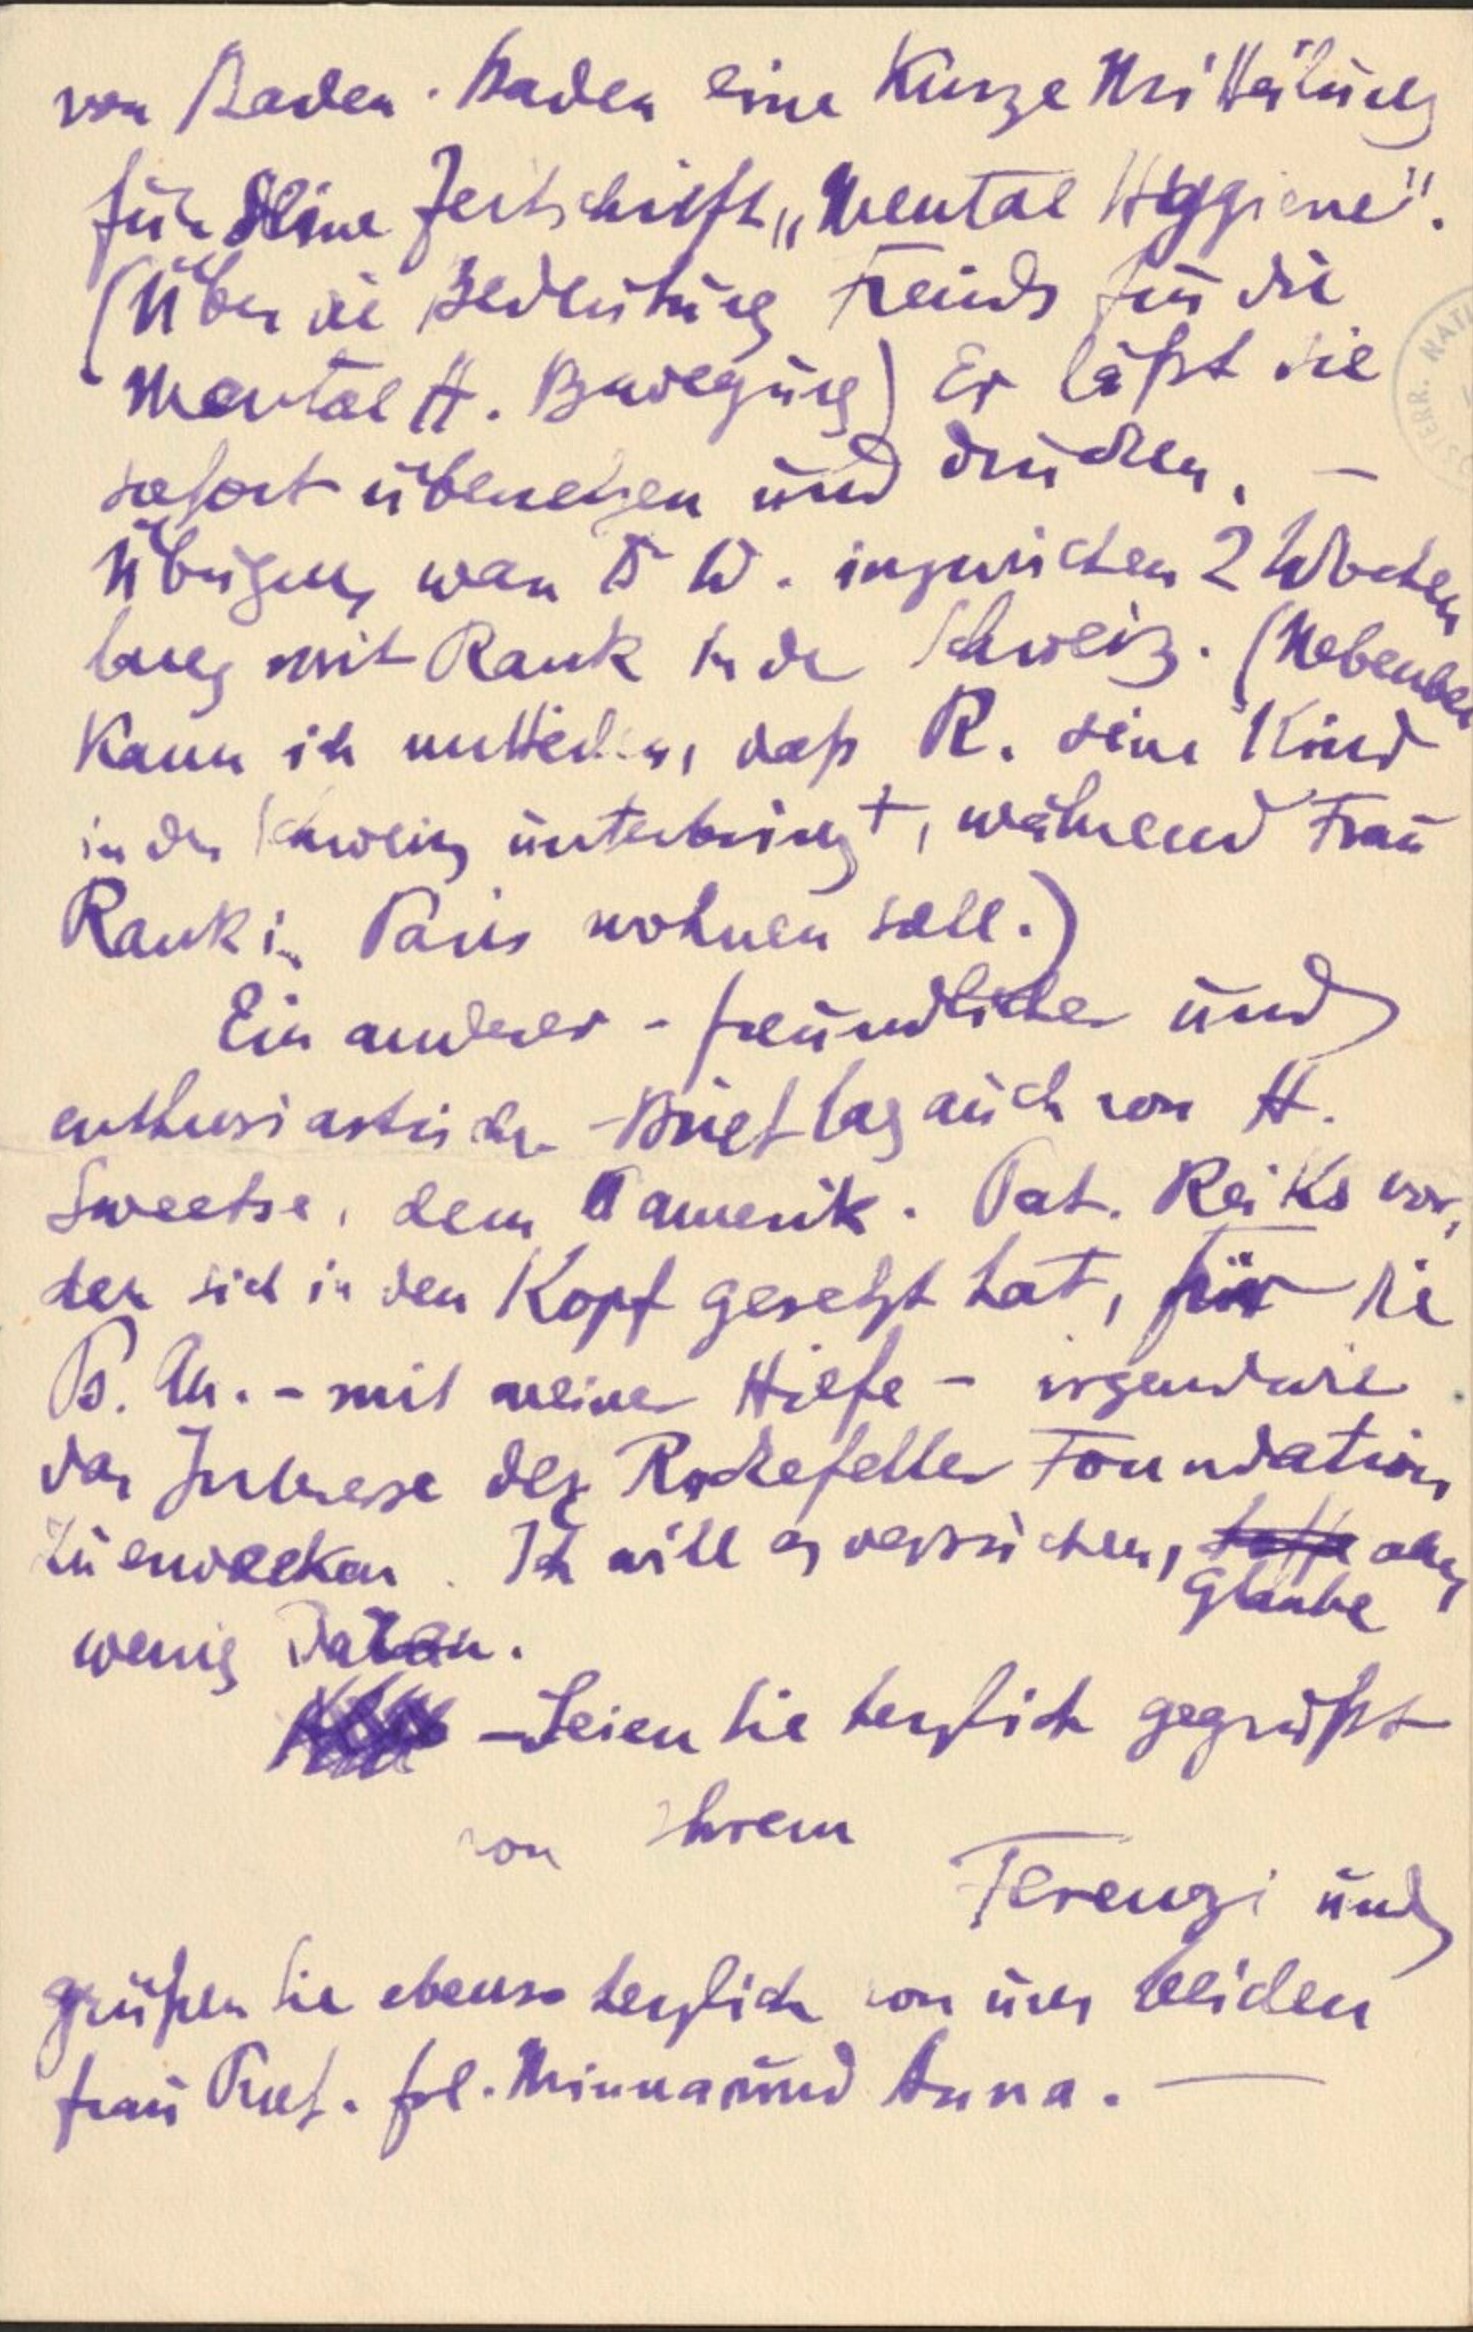 von Baden-Baden eine kurze Mitteilung
für seine Zeitschrift „Mental Hygiene".
(Über die Bedeutung Freuds für die
Mental H. Bewegung) Er läßt sie
sofort übersetzen und drucken. —
Übrigens war W. inzwischen 2 Wochen
lang mit Rank in der Schweiz. (Nebenbei
kann ich mitteilen, daß R. sein Kind
in der Schweiz unterbringt, während Frau
Rank in Paris wohnen soll.)
Ein anderer - freundlicher und
enthusiastischer - Brief lag auch von H.
Sweetser, dem amerik. Pat. Reiks vor,
der sich in den Kopf gesetzt hat, für die
Ps. An. - mit meiner Hilfe - irgendwie
das Interesse der Rockefeller Foundation
zu erwecken. Ich will es versuchen, hoffe aber
glaube
wenig daran.
- Seien Sie herzlich gegrüßt
von Ihrem
Ferenczi und
grüßen Sie ebenso herzlich von uns beiden
Frau Prof. Frl. Minna und Anna. —
ÖSTERR. NATI